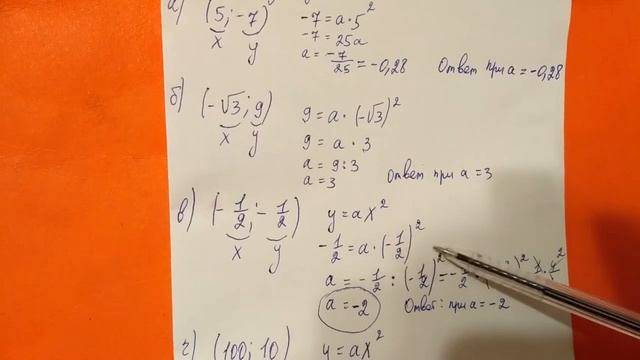 а) (5; -7) -7 = a·5²
x y -7 = 25a
a = -7/25 = -0,28 Ответ при a = -0,28
б) (-√3; 9) 9 = a · (-√3)²
x y 9 = a · 3
a = 9:3
a = 3 Ответ при a = 3
в) (-1/2; -1/2) y = ax²
x y -1/2 = a · (-1/2)²
a = -1/2 : (-1/2)² = -1/2
a = -2 Ответ: при a = -2
г) (100; 10) y = ax²